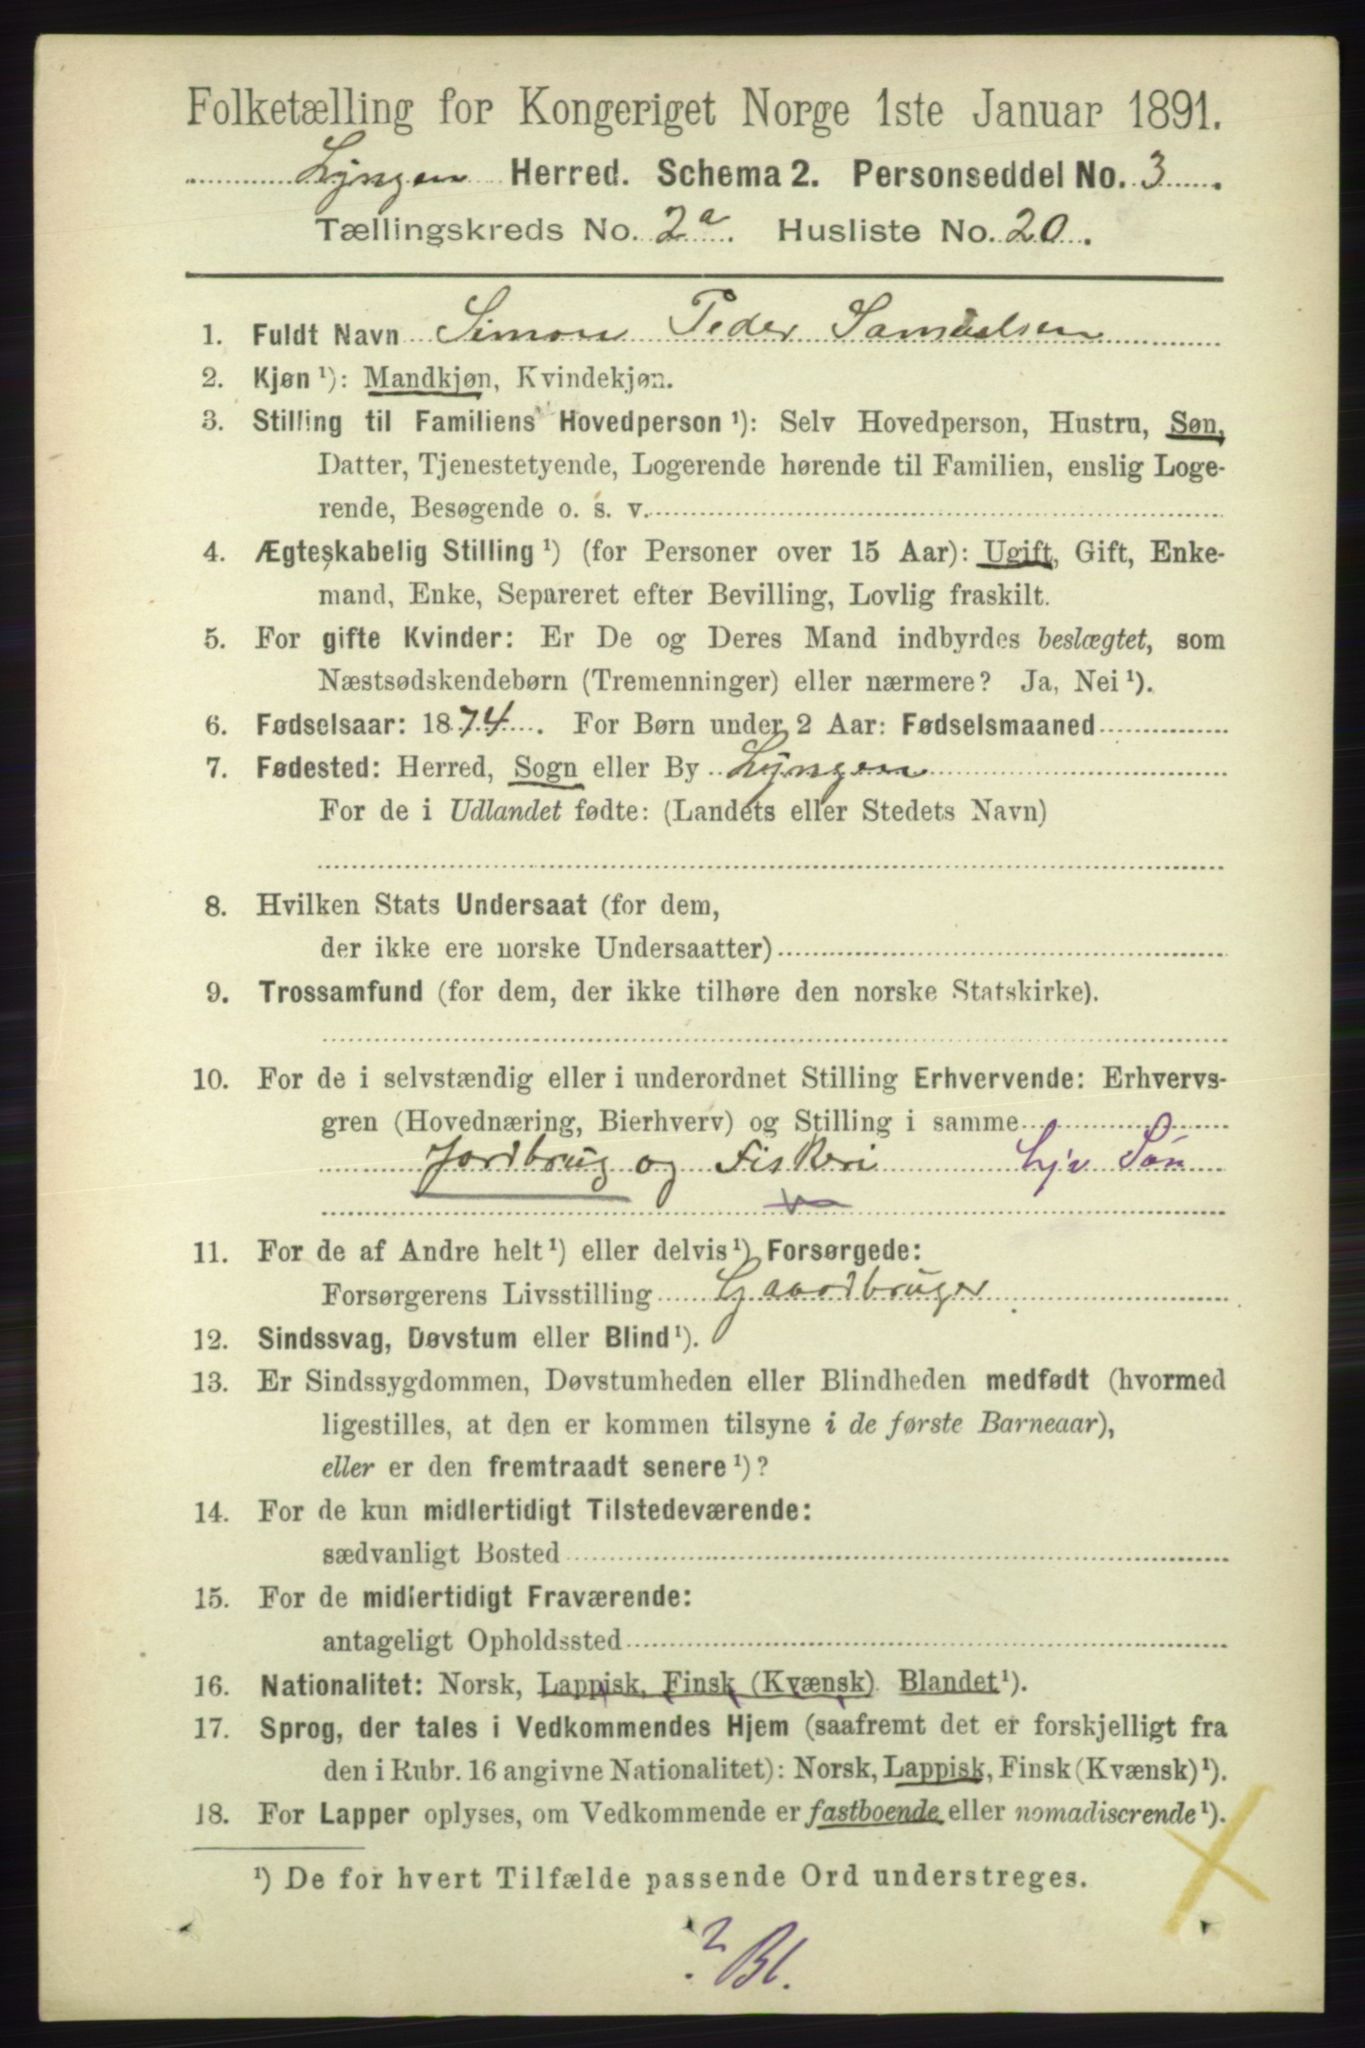 Folketælling for Kongeriget Norge 1ste Januar 1891.
Lyngen Herred. Schema 2. Personseddel No. 3.
Tællingskreds No. 2a. Husliste No. 20.
1. Fuldt Navn Simon Peder Samuelsen
2. Kjøn ¹): Mandkjøn, Kvindekjøn.
3. Stilling til Familiens Hovedperson ¹): Selv Hovedperson, Hustru, Søn,
Datter, Tjenestetyende, Logerende hørende til Familien, enslig Loge-
rende, Besøgende o. s. v.
4. Ægteskabelig Stilling ¹) (for Personer over 15 Aar): Ugift, Gift, Enke-
mand, Enke, Separeret efter Bevilling, Lovlig fraskilt.
5. For gifte Kvinder: Er De og Deres Mand indbyrdes beslægtet, som
Næstsødskendebørn (Tremenninger) eller nærmere? Ja, Nei ¹).
6. Fødselsaar: 1874. For Børn under 2 Aar: Fødselsmaaned
7. Fødested: Herred, Sogn eller By Lyngen
For de i Udlandet fødte: (Landets eller Stedets Navn)
8. Hvilken Stats Undersaat (for dem,
der ikke ere norske Undersaatter)
9. Trossamfund (for dem, der ikke tilhøre den norske Statskirke).
10. For de i selvstændig eller i underordnet Stilling Erhvervende: Erhvervs-
gren (Hovednæring, Bierhverv) og Stilling i samme
Jordbrug og Fiskeri Hjv Søn
11. For de af Andre helt ¹) eller delvis ¹) Forsørgede:
Forsørgerens Livsstilling Gaardbruger
12. Sindssvag, Døvstum eller Blind ¹).
13. Er Sindssygdommen, Døvstumheden eller Blindheden medfødt (hvormed
ligestilles, at den er kommen tilsyne i de første Barneaar),
eller er den fremtraadt senere ¹)?
14. For de kun midlertidigt Tilstedeværende:
sædvanligt Bosted
15. For de midlertidigt Fraværende:
antageligt Opholdssted
16. Nationalitet: Norsk, Lappisk, Finsk (Kvænsk) Blandet ¹).
17. Sprog, der tales i Vedkommendes Hjem (saafremt det er forskjelligt fra
den i Rubr. 16 angivne Nationalitet): Norsk, Lappisk, Finsk (Kvænsk) ¹).
18. For Lapper oplyses, om Vedkommende er fastboende eller nomadiserende ¹).
¹) De for hvert Tilfælde passende Ord understreges.
? Bl.